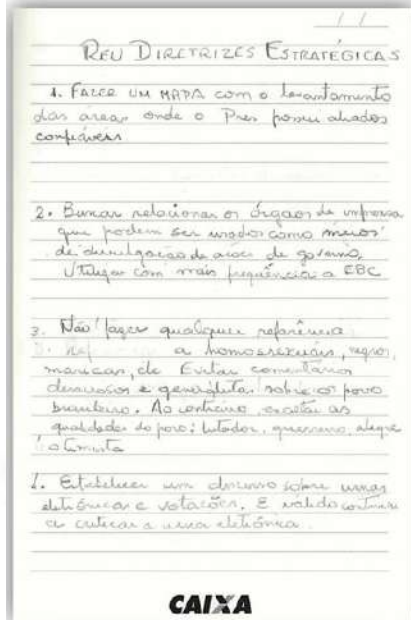 / /
REU DIRETRIZES ESTRATÉGICAS
1. FAZER UM MAPA com o levantamento
das áreas onde o Pres possui aliados
confiáveis
2. Buscar relacionar os órgãos de imprensa
que podem ser usados como meios
de divulgação de ações de governo.
Utilizar com mais frequência a EBC
3. Não fazer qualquer referência
a homossexuais, negros,
maricas, etc Evitar comentários
e generalistas sobre o povo
brasileiro. Ao contrário, exaltar as
qualidades do povo: lutador, guerreiro, alegre
otimista
1. Estabelecer um discurso sobre urnas
eletrônicas e votações. É válido continuar
a criticar a urna eletrônica.
CAIXA